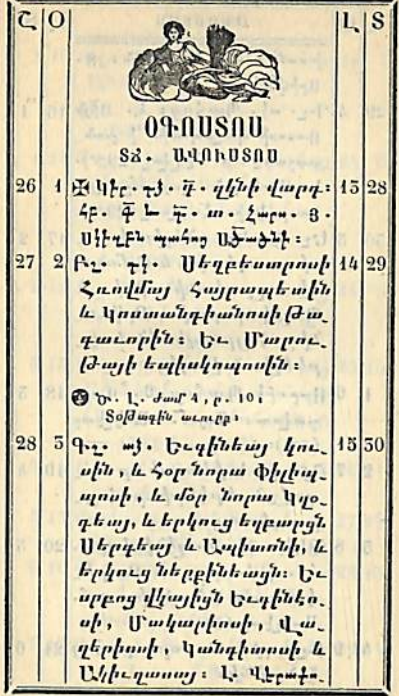 Շ Օ Լ Տ
ՕԳՈՍՏՈՍ
ՏՃ. ԱՎՈՒՍՏՈՍ
26 1 Կիր. դձ. զկնի վարդ: 13 28
2 Սեղբեստրոսի 14 29
27 Հռովմայ Հայրապետին
և Կոստանդիանոսի Թա֊
գաւորին: Եւ Մարու֊
թայի եպիսկոպոսին:
Ծ. Լ. ժամ 4, ր. 10:
Տօթագին աւուրք:
28 3 Գշ. աձ. Եւգինեայ կու֊ 15 30
սին, և Հօր նորա Փիլիպ֊
պոսի, և մօր նորա Կղօ֊
դեայ, և երկուց եղբարցն
Սերգեայ և Ապիտոնի, և
երկուց ներքինեացն: Եւ
սրբոց վկայիցն Եւգինէո֊
սի, Մակարիոսի, Վա֊
ղերիոսի, Կանդիտոսի և
Ակիւղասոյ: Լ. Վերափո֊